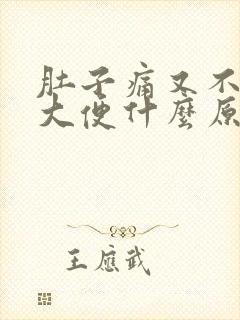 肚子痛又不
大便什麼原
王應武